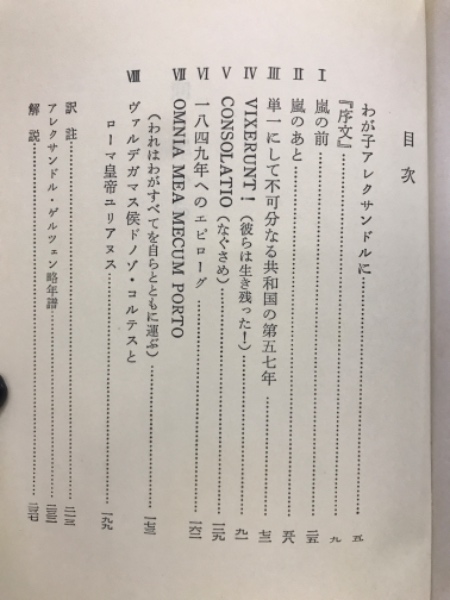 目次
わが子アレクサンドルに……五
『序文』……九
I 嵐の前……二五
II 嵐のあと……五八
III 単一にして不可分なる共和国の第五七年……七三
IV VIXERUNT！（彼らは生き残った！）……九一
V CONSOLATIO（なぐさめ）……一二九
VI 一八四九年へのエピローグ……一六一
VII OMNIA MEA MECUM PORTO
（われはわがすべてを自らとともに運ぶ）……一七三
VIII ヴァルデガマス侯ドノゾ・コルテスと
ローマ皇帝ユリアヌス……一九九
訳註……二一三
アレクサンドル・ゲルツェン略年譜……
解説……